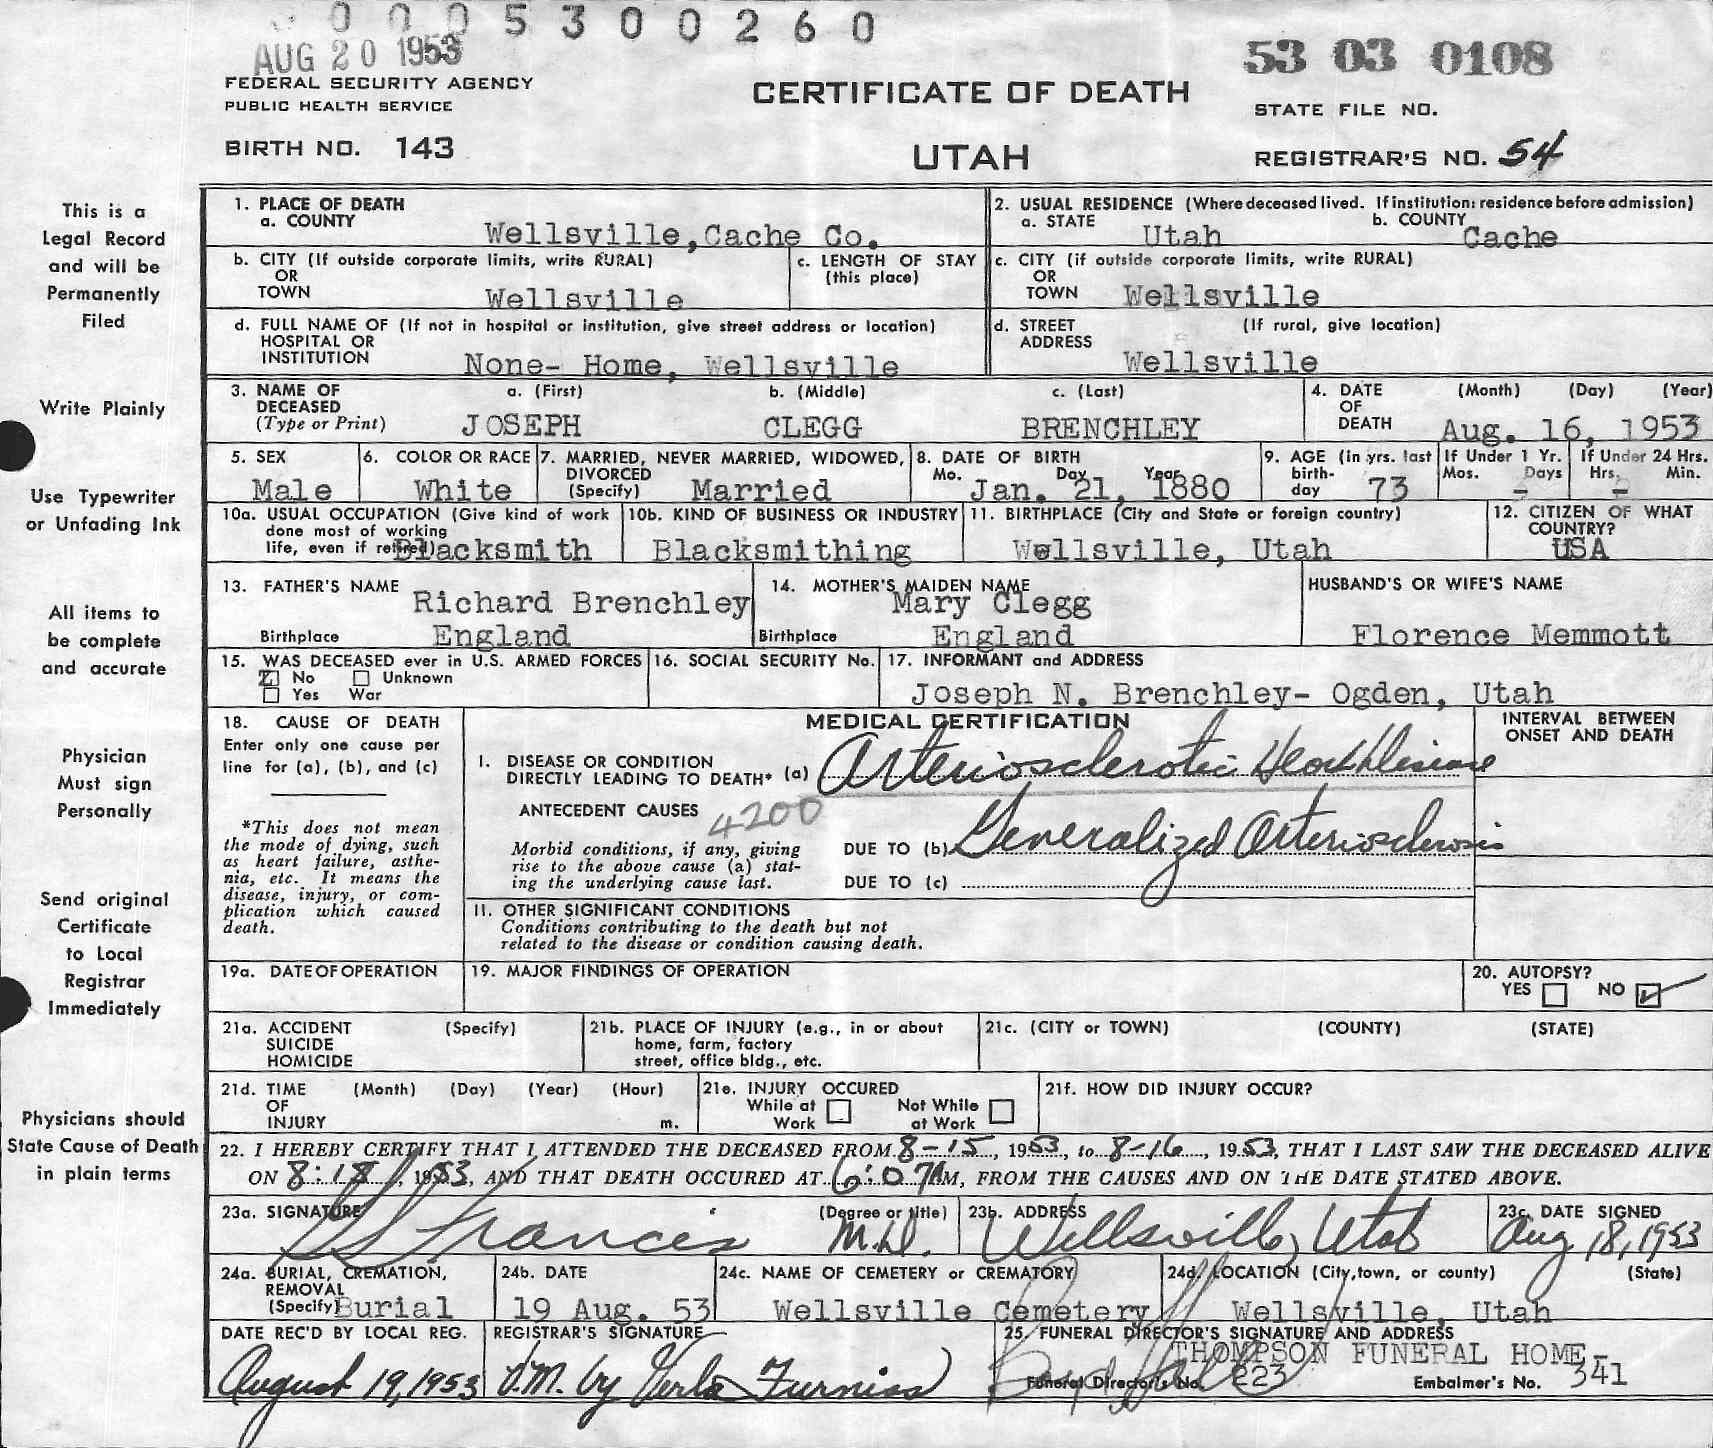 0 0 0 5 3 0 0 2 6 0
AUG 20 1953
53 03 0108
FEDERAL SECURITY AGENCY
PUBLIC HEALTH SERVICE
CERTIFICATE OF DEATH
STATE FILE NO.
BIRTH NO. 143
UTAH
REGISTRAR'S NO. 54
This is a
Legal Record
and will be
Permanently
Filed
Write Plainly
Use Typewriter
or Unfading Ink
All items to
be complete
and accurate
Physician
Must sign
Personally
Send original
Certificate
to Local
Registrar
Immediately
Physicians should
State Cause of Death
in plain terms
1. PLACE OF DEATH
a. COUNTY
Wellsville, Cache Co.
2. USUAL RESIDENCE (Where deceased lived. If institution: residence before admission)
a. STATE Utah b. COUNTY Cache
b. CITY (If outside corporate limits, write RURAL)
OR
TOWN Wellsville
c. LENGTH OF STAY
(this place)
c. CITY (if outside corporate limits, write RURAL)
OR
TOWN Wellsville
d. FULL NAME OF (If not in hospital or institution, give street address or location)
HOSPITAL OR
INSTITUTION None- Home, Wellsville
d. STREET (If rural, give location)
ADDRESS
Wellsville
3. NAME OF a. (First) b. (Middle) c. (Last)
DECEASED
(Type or Print) JOSEPH CLEGG BRENCHLEY
4. DATE (Month) (Day) (Year)
OF
DEATH Aug. 16, 1953
5. SEX
Male
6. COLOR OR RACE
White
7. MARRIED, NEVER MARRIED, WIDOWED,
DIVORCED
(Specify) Married
8. DATE OF BIRTH
Mo. Day Year
Jan. 21, 1880
9. AGE (In yrs. last
birth-
day 73
If Under 1 Yr.
Mos. Days
-
If Under 24 Hrs.
Hrs. Min.
-
10a. USUAL OCCUPATION (Give kind of work
done most of working
life, even if retired) Blacksmith
10b. KIND OF BUSINESS OR INDUSTRY
Blacksmithing
11. BIRTHPLACE (City and State or foreign country)
Wellsville, Utah
12. CITIZEN OF WHAT
COUNTRY?
USA
13. FATHER'S NAME
Richard Brenchley
Birthplace England
14. MOTHER'S MAIDEN NAME
Mary Clegg
Birthplace England
HUSBAND'S OR WIFE'S NAME
Florence Memmott
15. WAS DECEASED ever in U.S. ARMED FORCES
No Unknown
Yes War
16. SOCIAL SECURITY No.
17. INFORMANT and ADDRESS
Joseph N. Brenchley- Ogden, Utah
18. CAUSE OF DEATH
Enter only one cause per
line for (a), (b), and (c)
*This does not mean
the mode of dying, such
as heart failure, asthe-
nia, etc. It means the
disease, injury, or com-
plication which caused
death.
MEDICAL CERTIFICATION
INTERVAL BETWEEN
ONSET AND DEATH
I. DISEASE OR CONDITION
DIRECTLY LEADING TO DEATH* (a) Arteriosclerotic Heart Disease
ANTECEDENT CAUSES
4200
Morbid conditions, if any, giving
rise to the above cause (a) stat-
ing the underlying cause last.
DUE TO (b) Generalized Arteriosclerosis
DUE TO (c)
11. OTHER SIGNIFICANT CONDITIONS
Conditions contributing to the death but not
related to the disease or condition causing death.
19a. DATE OF OPERATION
19. MAJOR FINDINGS OF OPERATION
20. AUTOPSY?
YES NO
21a. ACCIDENT (Specify)
SUICIDE
HOMICIDE
21b. PLACE OF INJURY (e.g., in or about
home, farm, factory
street, office bldg., etc.
21c. (CITY or TOWN) (COUNTY) (STATE)
21d. TIME (Month) (Day) (Year) (Hour)
OF
INJURY m.
21e. INJURY OCCURED
While at Not While
Work at Work
21f. HOW DID INJURY OCCUR?
22. I HEREBY CERTIFY THAT I ATTENDED THE DECEASED FROM 8-15, 1953, to 8-16, 1953, THAT I LAST SAW THE DECEASED ALIVE
ON 8:15, 1953, AND THAT DEATH OCCURED AT 6:07AM, FROM THE CAUSES AND ON THE DATE STATED ABOVE.
23a. SIGNATURE (Degree or title)
Francis M.D.
23b. ADDRESS
Wellsville, Utah
23c. DATE SIGNED
Aug 18, 1953
24a. BURIAL, CREMATION,
REMOVAL
(Specify) Burial
24b. DATE
19 Aug. 53
24c. NAME OF CEMETERY or CREMATORY
Wellsville Cemetery
24d. LOCATION (City, town, or county) (State)
Wellsville, Utah
DATE REC'D BY LOCAL REG.
August 19, 1953
REGISTRAR'S SIGNATURE
V.M. by Verla Furniss
25. FUNERAL DIRECTOR'S SIGNATURE AND ADDRESS
THOMPSON FUNERAL HOME-
Funeral Director's No. 223 Embalmer's No. 341